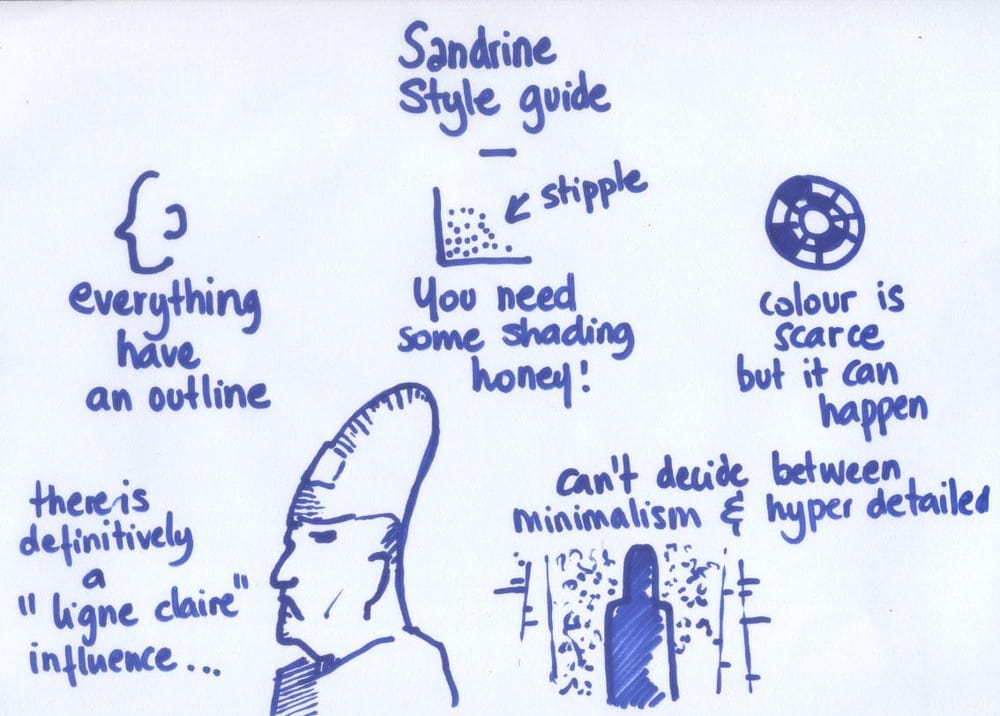 Sandrine
Style guide
everything
have
an outline
stipple
You need
some shading
honey!
colour is
scarce
but it can
happen
there is
definitively
a
"ligne claire"
influence...
can't decide between
minimalism & hyper detailed